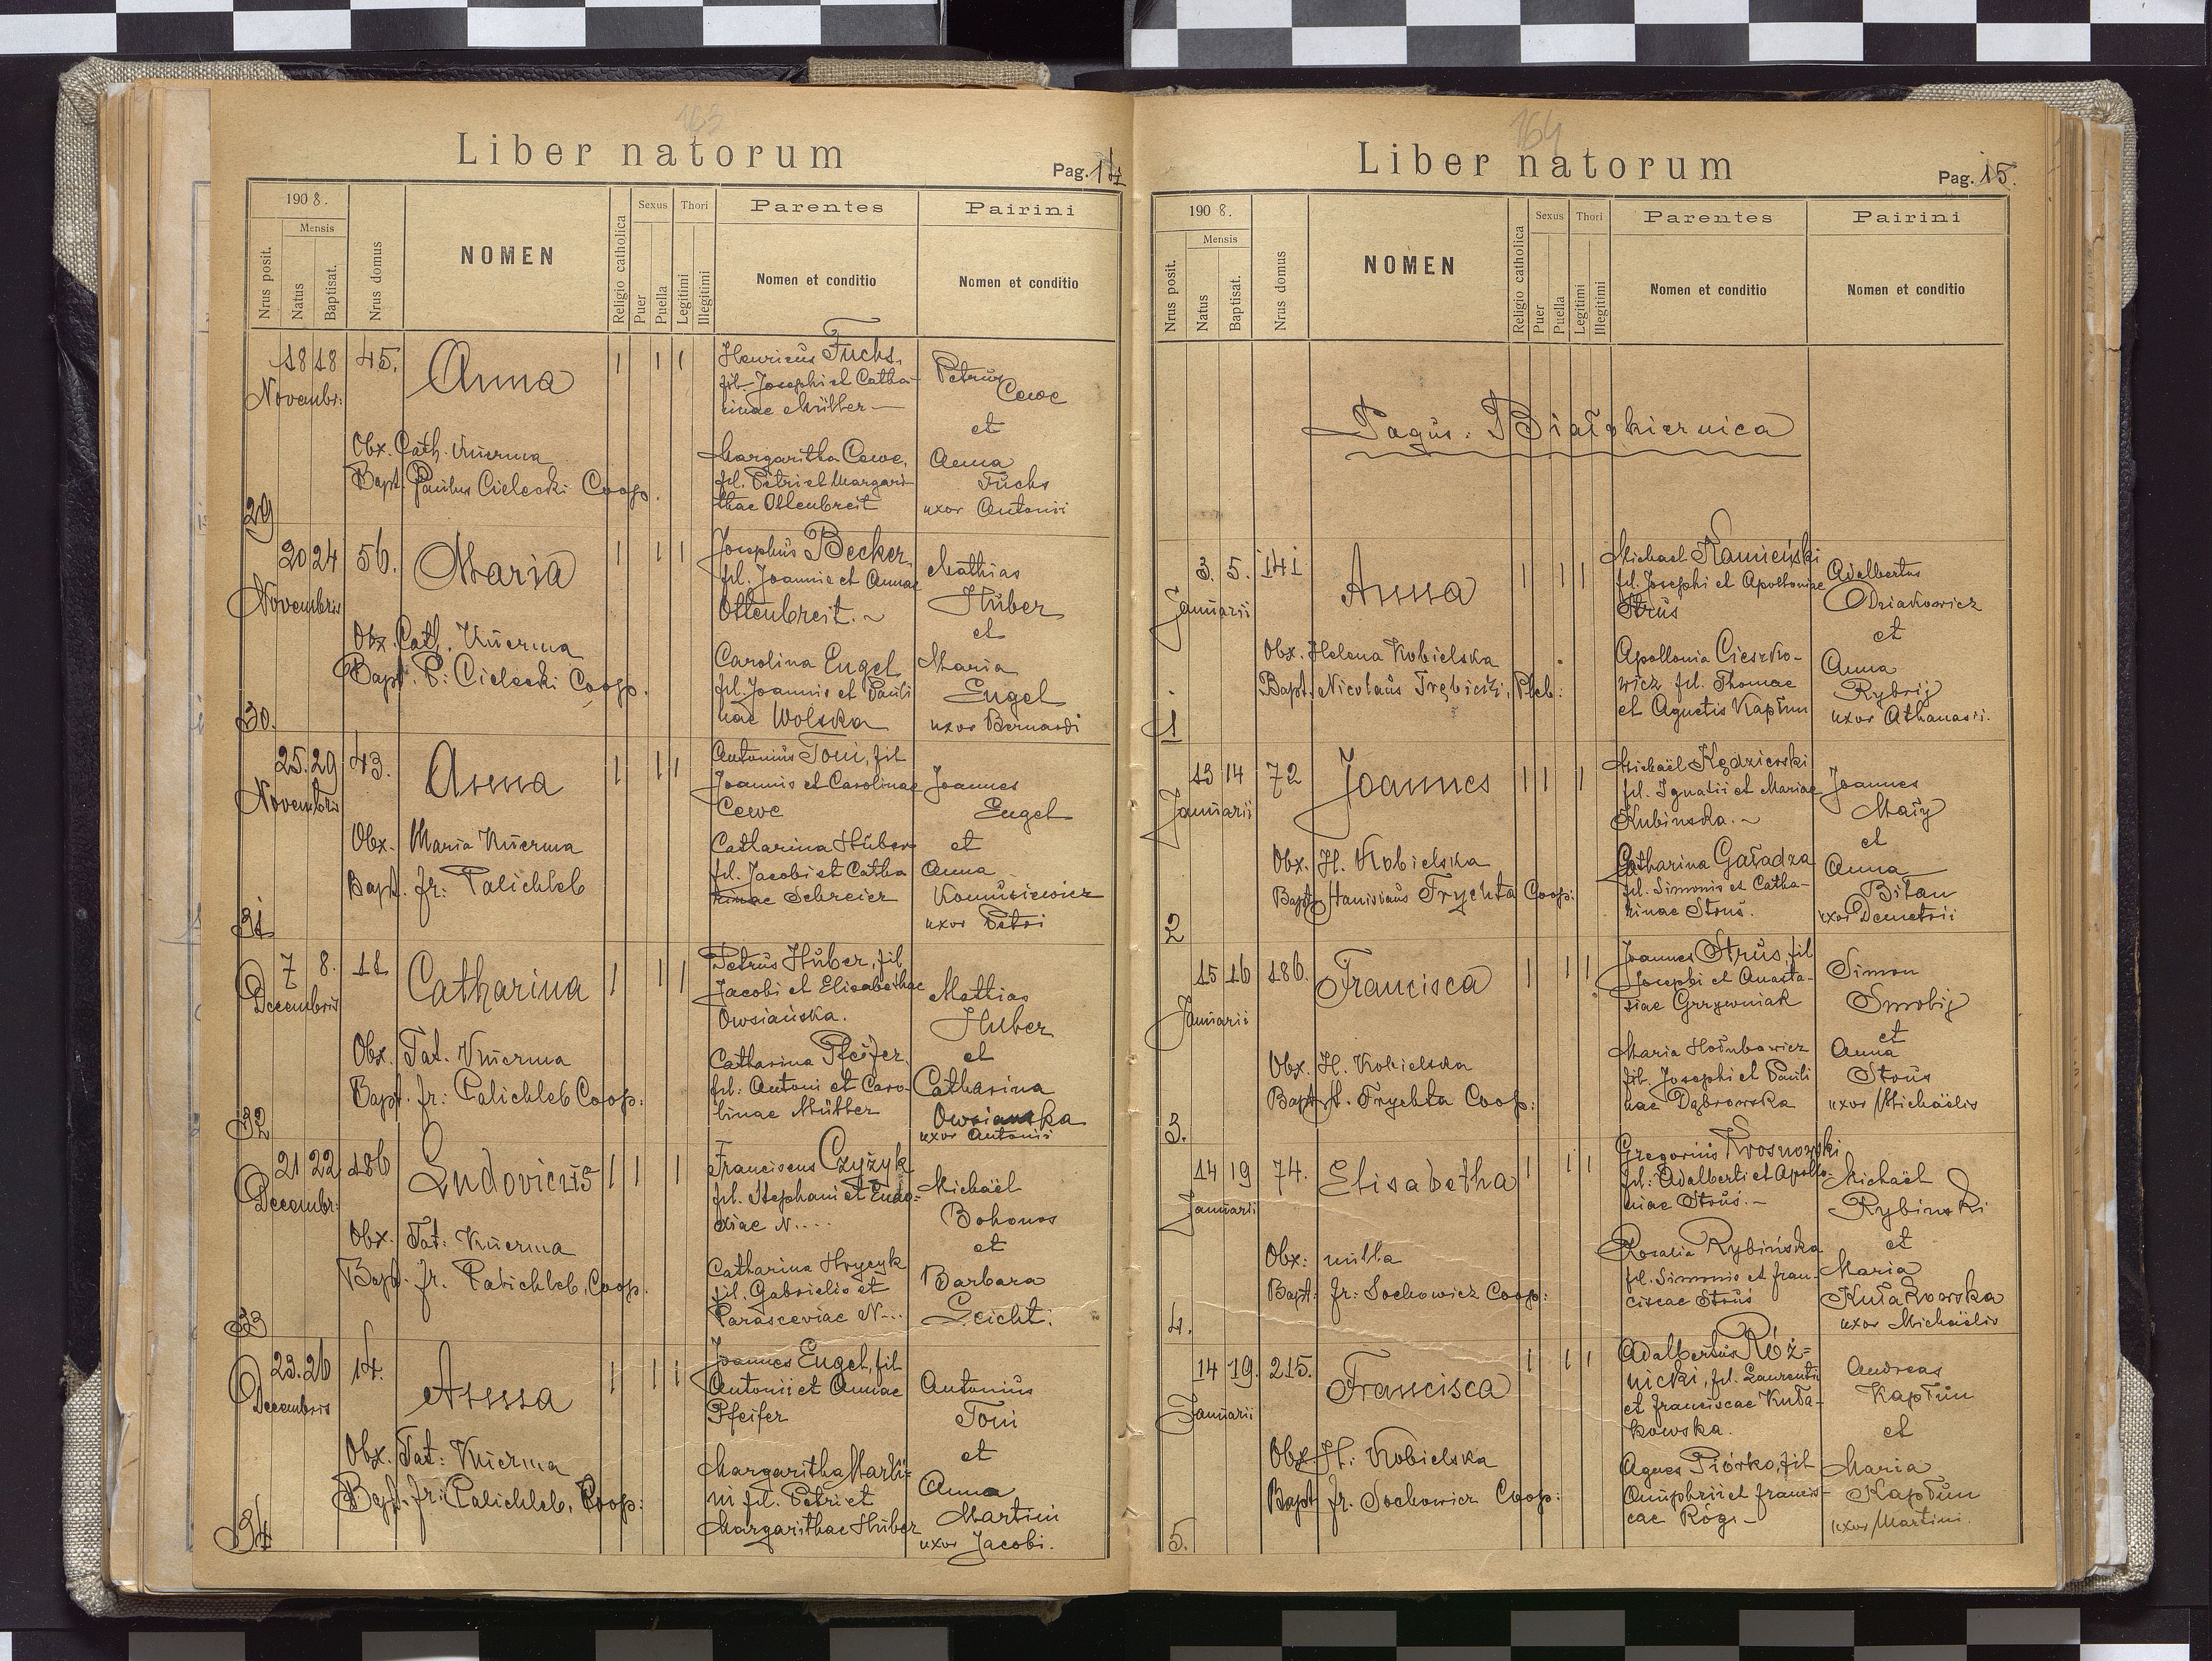 163
Liber natorum
Pag. 14
1908.
Mensis
Nrus posit.
Natus
Baptisat.
Nrus domus
NOMEN
Religio catholica
Sexus
Puer
Puella
Thori
Legitimi
Illegitimi
Parentes
Nomen et conditio
Pairini
Nomen et conditio
29
18 18 45.
Novembr:
Anna
1 1 1
Obx. Cath. Kuerma
Bapt. Paulus Cielecki Coop.
Henricus Fuchs,
fil. Josephi et Catha-
rinae Müller —
Margaritha Cewe,
fil. Petri et Margari
thae Ottenbreit
Petrus
Cewe
et
Anna
Fuchs
uxor Antonii
30.
20 24 56.
Novembris
Maria
1 1 1
Obx. Cath. Kuerma
Bapt. P: Cielecki Coop.
Josephus Becker,
fil. Joannis et Annae
Ottenbreit. ~
Carolina Engel
fil. Joannis et Pauli
nae Wolska
Mathias
Huber
et
Maria
Engel
uxor Bernardi
31
25. 29 43.
Novembris
Anna
1 1 1
Obx. Maria Kuerma
Bapt. fr: Palichleb
Antonius Toni, fil
Joannis et Carolinae
Cewe
Catharina Huber
fil. Jacobi et Catha
rinae Schreier
Joannes
Engel
et
Anna
Komusiewicz
uxor Petri
32
7 8. 11
Decembris
Catharina
1 1 1
Obx. Tat. Kuerma
Bapt. fr: Palichleb Coop:
Petrus Huber, fil
Jacobi et Elisabethae
Owsiańska.
Catharina Pfeifer,
fil: Antoni et Caro-
linae Müller
Mathias
Huber
et
Catharina
Owsianska
uxor Antonii
33
21 22 186
Decembr:
Ludovicus
1 1 1
Obx. Tat: Kuerma
Bapt. fr. Palichleb, Coop.
Franciscus Czyżyk
fil. Stephani et Eudo=
xiae N....
Catharina Hrycyk
fil. Gabrielis et
Parasceviae N...
Michaël
Bohonos
et
Barbara
Leicht.
34
23. 26 14.
Decembris
Anna
1 1 1
Obx. Tat: Kuerma
Bapt. fr: Palichleb, Coop:
Joannes Engel, fil
Antonii et Annae
Pfeifer
Margaritha Marti=
ni fil. Petri et
Margarithae Huber
Antonius
Toni
et
Anna
Martini
uxor Jacobi.
164
Liber natorum
Pag. 15.
1908.
Mensis
Nrus posit.
Natus
Baptisat.
Nrus domus
NOMEN
Religio catholica
Sexus
Puer
Puella
Thori
Legitimi
Illegitimi
Parentes
Nomen et conditio
Pairini
Nomen et conditio
Pagus: Białokiernica
1
3. 5. 141
Januarii
Anna
1 1 1
Obx. Helena Kobielska
Bapt. Nicolaus Trębicki, Pleb:
Michael Kamieński
fil. Josephi et Apolloniae
Strus
Apollonia Cieszko-
wicz fil. Thomae
et Agnetis Kapłun
Adelbertus
Dziakowicz
et
Anna
Rybij
uxor Athanasii.
2
13 14 72
Januarii
Joannes
1 1 1
Obx. H. Kobielska
Bapt. Stanislaus Frychta Coop:
Michaël Kędzierski
fil. Ignatii et Mariae
Kubinska. ~
Catharina Gaładza
fil. Simonis et Catha-
rinae Strus.
Joannes
Maiy
et
Anna
Bilan
uxor Demetrii
3.
15 16 186.
Januarii
Francisca
1 1 1
Obx. H. Kobielska
Bapt. St. Frychta Coop:
Joannes Strus, fil
Josephi et Anasta-
siae Grzywniak
Maria Hołubowicz
fil. Josephi et Pauli
nae Dąbrowska
Simon
Smolij
et
Anna
Strus
uxor Michaëlis
4.
14 19 74.
Januarii
Elisabetha
1 1 1
Obx: nulla
Bapt: fr: Sochowicz Coop:
Gregorius Krosnowski
fil: Adalberti et Apollo-
niae Strus. —
Rosalia Rybińska
fil. Simonis et fran-
ciscae Strus
Michaël
Rybinski
et
Maria
Kułakowska
uxor Michaëlis
5.
14 19. 215.
Januarii
Francisca
1 1 1
Obx. H: Kobielska
Bapt fr. Sochowicz Coop:
Adalbertus Róż=
nicki, fil. Laurentii
et franciscae Kuła-
kowska.
Agnes Piórko, fil
Onuphrii et francis-
cae Rogi —
Andreas
Kapłun
et
Maria
Kapłun
uxor Martini.